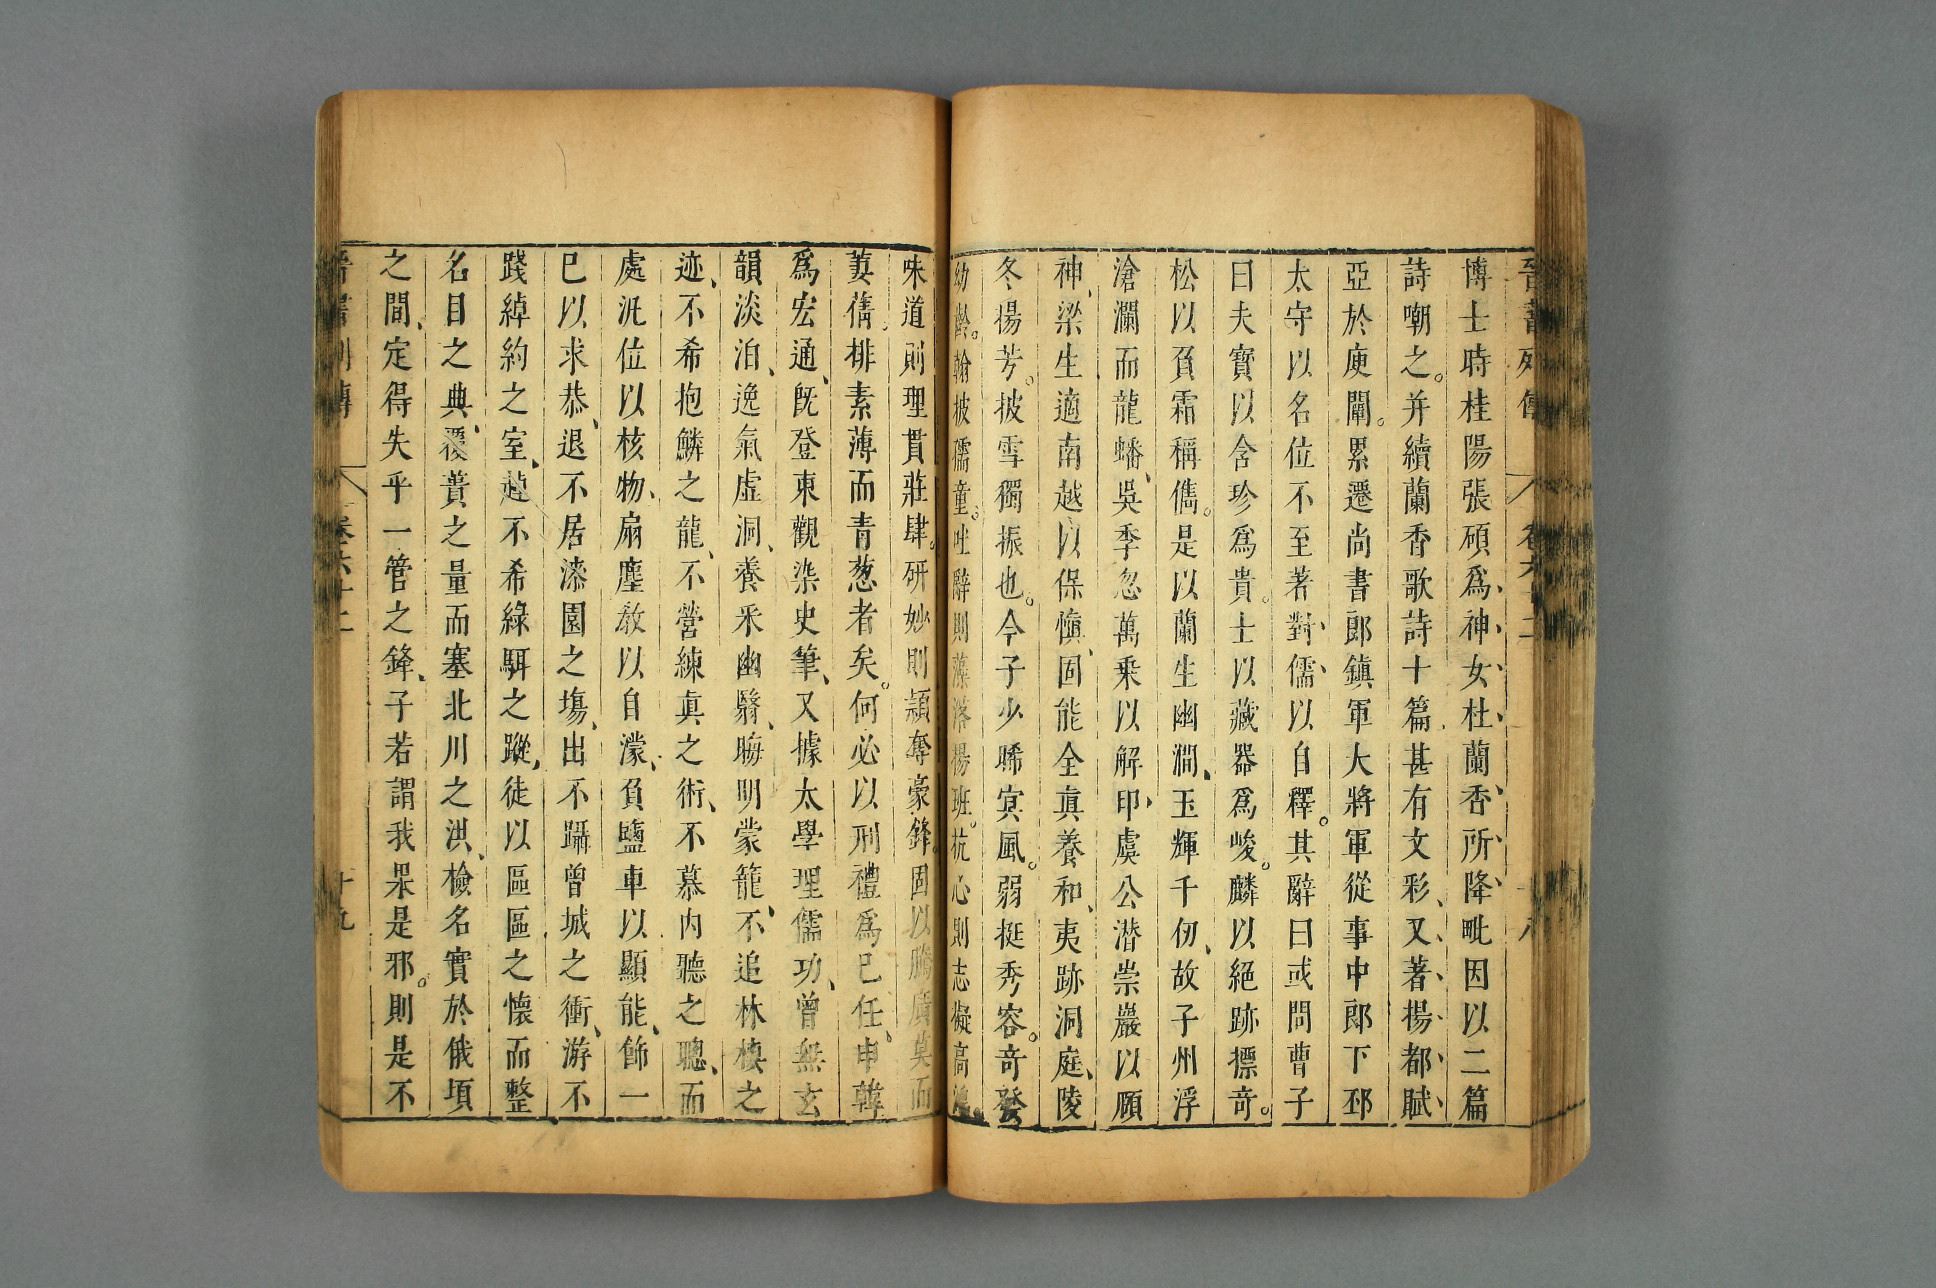 晉書列傳 卷六十二 十八
博士時桂陽張碩爲神女杜蘭香所降毗因以二篇
詩嘲之并續蘭香歌詩十篇甚有文彩又著揚都賦
亞於庾闡累遷尚書郎鎮軍大將軍從事中郎下邳
太守以名位不至著對儒以自釋其辭曰或問曹子
曰夫寶以含珍爲貴士以藏器爲峻麟以絕跡標奇
松以負霜稱儁是以蘭生幽澗玉輝千仞故子州浮
滄瀾而龍蟠吳季忽萬乘以解印虞公潜崇巖以頤
神梁生適南越以保愼固能全真養和夷跡洞庭陵
冬揚芳披雪獨振也今子少晞冥風弱挺秀容奇發
幼齡翰披儒童吐辭則藻落揚班抗心則志擬高鴻
味道則理貫莊肆研妙則頴奪豪鋒固以騰廣莫而
萋蒨排素薄而青葱者矣何必以刑禮爲己任申韓
爲宏通既登東觀染史筆又據太學理儒功曾無玄
韻淡泊逸氣虛洞養釆幽翳晦明蒙籠不追林棲之
迹不希抱鱗之龍不營練真之術不慕內聽之聰而
處汎位以核物扇塵敎以自濛負鹽車以顯能飾一
己以求恭退不居漆園之塲出不躡曾城之衝游不
踐綽約之室趠不希綠駬之蹤徒以區區之懷而整
名目之典覆蕢之量而塞北川之洪檢名實於俄頃
之間定得失乎一管之鋒子若謂我果是邪則是不
晉書列傳 卷六十二 十九